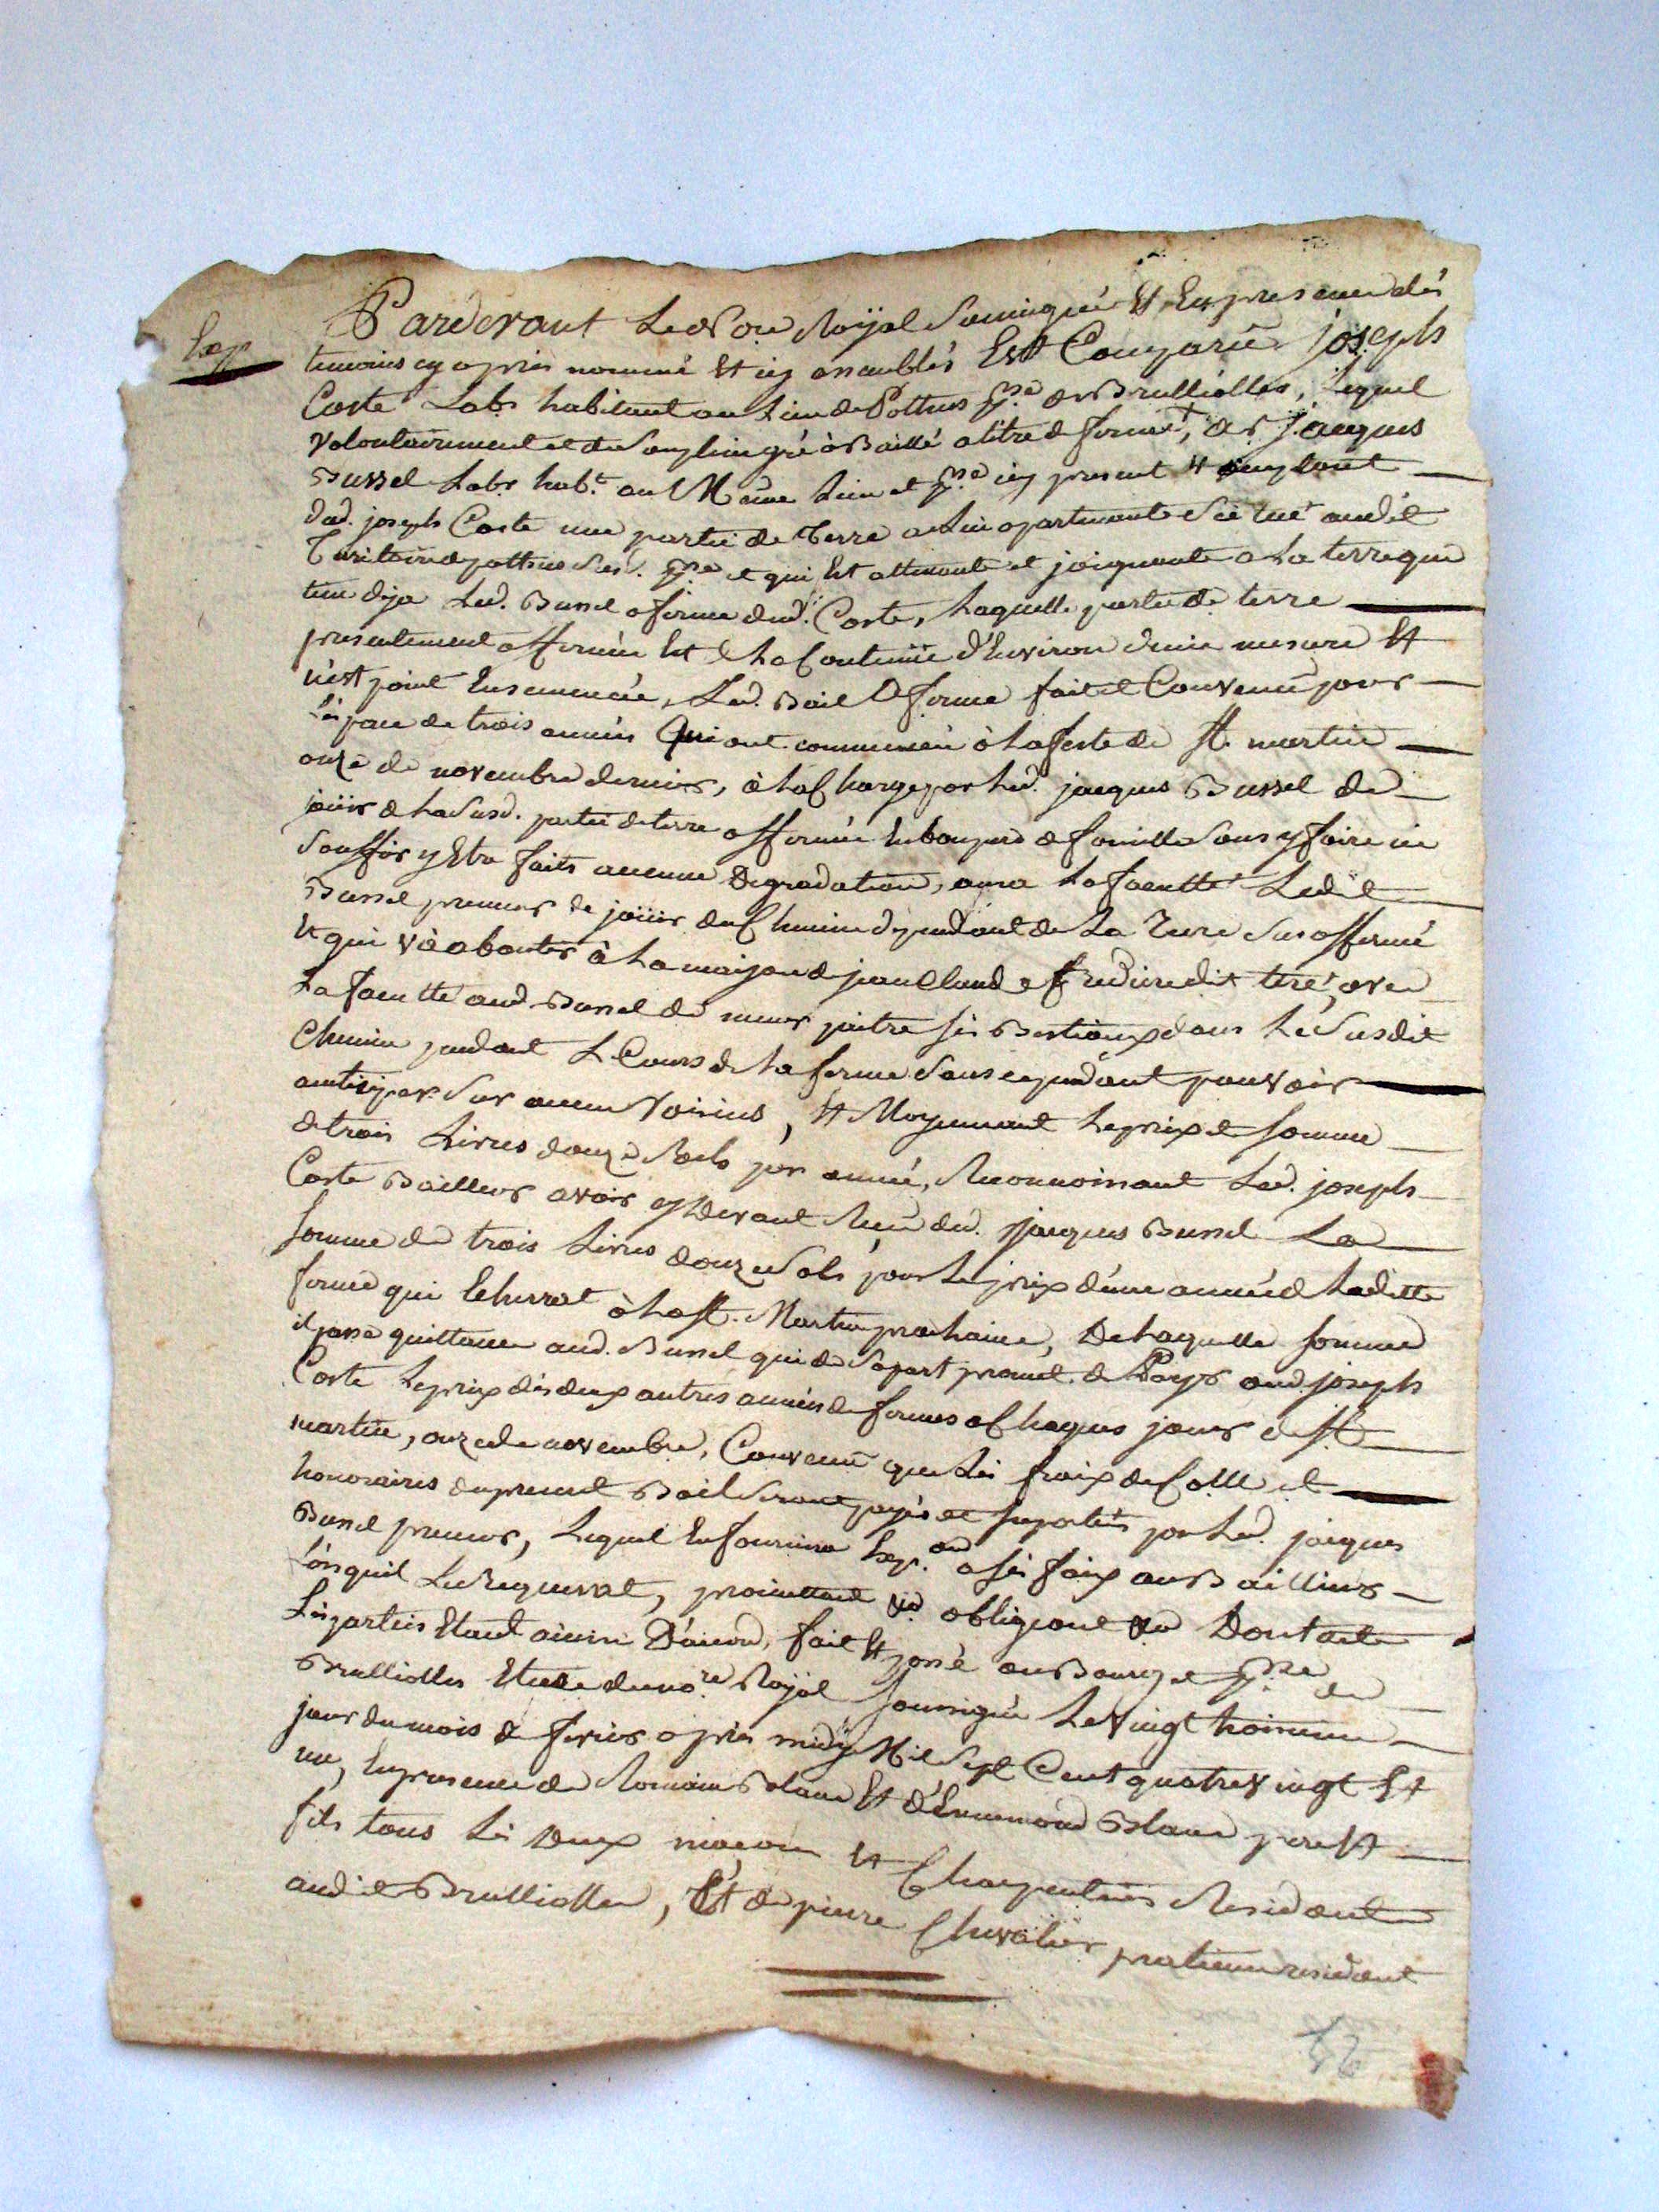 Exp
Pardevant Le Nore Roÿal Soussigné Et En presence dés
temoins cy après nommé Et icy assemblés Est Comparû joseph
Coste Labr habitant au Lieu de Pothus psse de Brulliolles, Lequel
volontairement et de son plein gré à Baillé a titre de ferme, a sr jacques
Bussel Labr habt. au Même Lieu et psse icy present Et acceptant
dud. joseph Coste une partie de Terre a Lui apartenante Sittué audit
Territoire de pothus Susd. psse et qui Est attenante et joignante a La terre que
tien deja Led. Bussel a ferme dud. Coste, Laquelle partie de terre
presentement affermée Est de La Contenüe d'Environ demie mesure Et
n'est point Ensemencée, Led. Bail a ferme fait et Convenû pour
L'éspace de trois années Qui ont commencéz à La feste de St. martin
onze de novembre dernier, à La Charge par Led. jacques Bussel de
joüir de La Susd. partie de terre affermée En bon pere de famille Sans y faire ni
Souffrir y Etre faits aucune Degradation, aura La faculté Ledit
Bussel preneur de joüir du Chemin dependant de La Terre Sus affermé
Et qui và aboutir à La maison de jean Claude dit tité, avec
La faculté aud. Bussel de mener paitre ses Bestiaux dans Le Susdit
Chemin pendant Le Cours de La ferme Sans cependant pouvoir
anticiper Sur aucun Voisins, Et Moyennant Le prix et Somme
de trois Livres douze Sols par année, Reconnoissant Led. joseph
Coste Bailleur avoir cy Devant Reçu dud. jacques Bussel La
Somme de trois Livres douze Sols pour Le prix d'une année de Ladite
ferme qui Echerrat à La St. Martin prochaine, De Laquelle Somme
il passe quittance aud. Bussel qui de Sa part promet de Payer aud. joseph
Coste Le prix dès deux autres années de fermes a Chaques jours de St
martin, onze de novembre, Convenû que Les fraix de Colle et
honoraires du present Bail Seront payés et suportés par Led. jacques
Bussel preneur, Lequel En fournira Expon a ses fraix au Bailleur
Lorsqu'il Le requerrat, promettant obligeant Dont acte
Les parties Etant ainsi D'accord, fait Et passé au Bourg et psse de
Brulliolles Etude du nore Royal Soussigné Le vingt troisieme
jour du mois de fevrier après midy Mil Sept Cent quatre vingt Et
un, En presence de Romain Blanc Et d'Ennemond Blanc pere Et
fils tous Les Deux maçon Et Charpentiers Residents
audit Brulliolles, Et de pierre Chevalier praticien residant